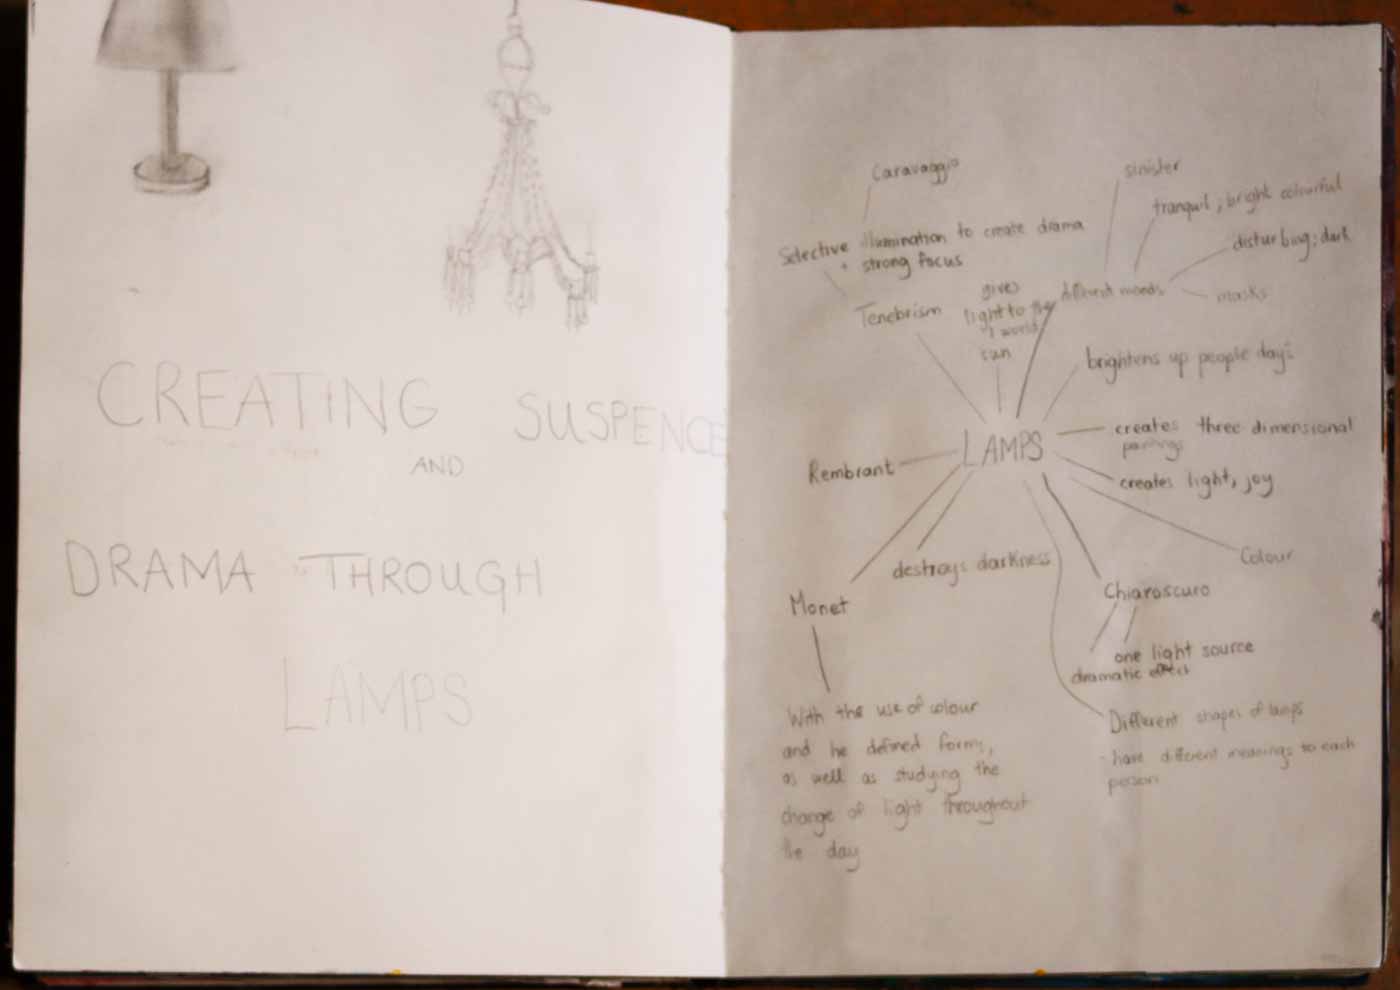 CREATING SUSPENCE
AND
DRAMA THROUGH
LAMPS
Caravaggio
Selective illumination to create drama
+ strong focus
Tenebrism
gives
light to the
world
sun
different moods
sinister
tranquil ; bright colourful
disturbing; dark
masks
brightens up people days
LAMPS
creates three dimensional
paintings
creates light, joy
Colour
Rembrant
destroys darkness
Monet
With the use of colour
and he defined forms,
as well as studying the
change of light throughout
the day
Chiaroscuro
one light source
dramatic effect
Different shapes of lamps
- have different meanings to each
person